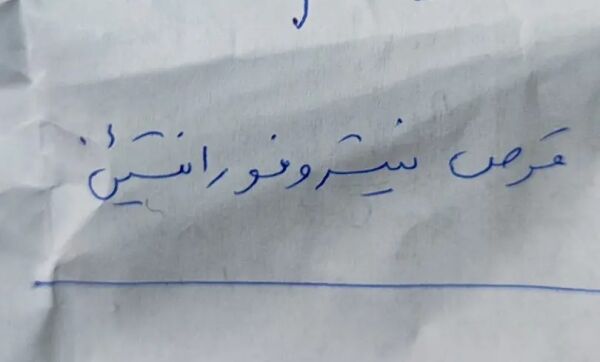 قرص نیتروفورانتئین